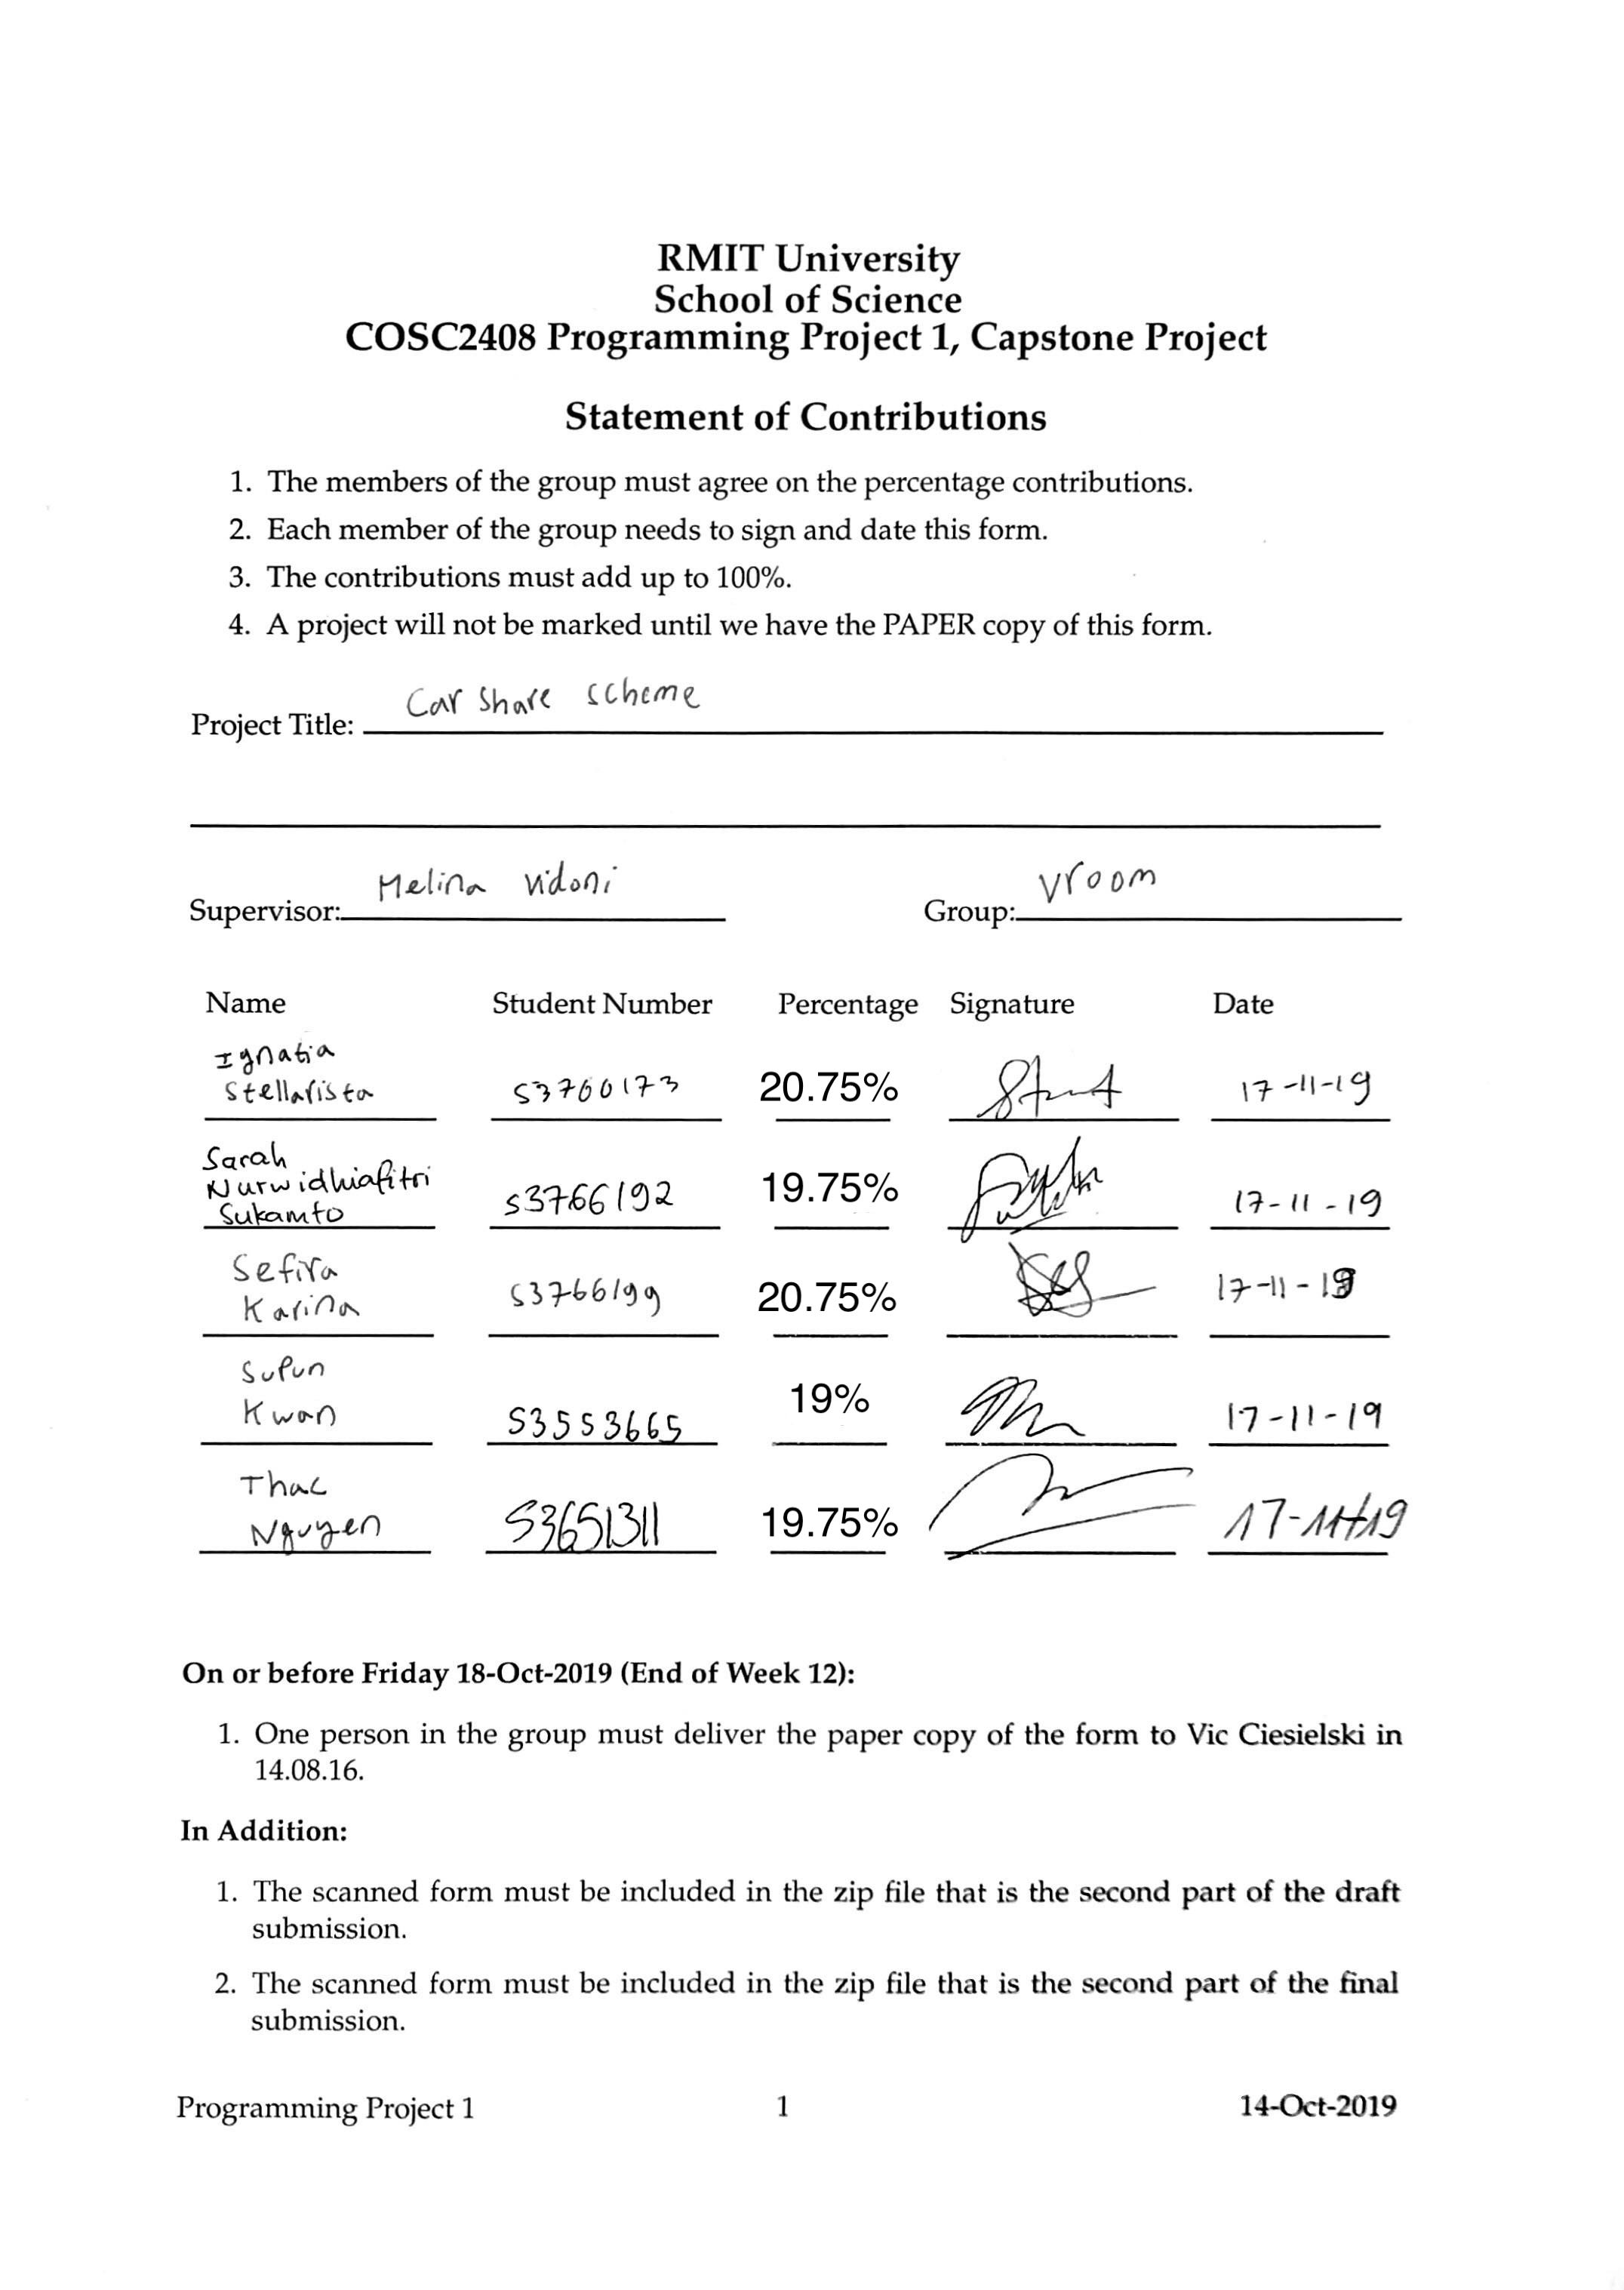 RMIT University
School of Science
COSC2408 Programming Project 1, Capstone Project
Statement of Contributions
1. The members of the group must agree on the percentage contributions.
2. Each member of the group needs to sign and date this form.
3. The contributions must add up to 100%.
4. A project will not be marked until we have the PAPER copy of this form.
Project Title: Car Share Scheme
Supervisor: Melina Vidoni Group: Vroom
Name Student Number Percentage Signature Date
Ignatia
Stellarista S3760173 20.75% 17-11-19
Sarah
Nurwidhiafitri
Sukamto S3766192 19.75% 17-11-19
Sefira
Karina S3766199 20.75% 17-11-19
Supun
Kwan S3553665 19% 17-11-19
Thac
Nguyen S3651311 19.75% 17-11-19
On or before Friday 18-Oct-2019 (End of Week 12):
1. One person in the group must deliver the paper copy of the form to Vic Ciesielski in
14.08.16.
In Addition:
1. The scanned form must be included in the zip file that is the second part of the draft
submission.
2. The scanned form must be included in the zip file that is the second part of the final
submission.
Programming Project 1 1 14-Oct-2019